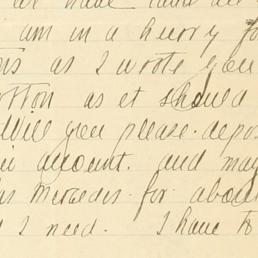 am in a hurry fo
as I wrote you
otton as et should
Will you please depos
account. and may
Mercedes for about
I need. I have to